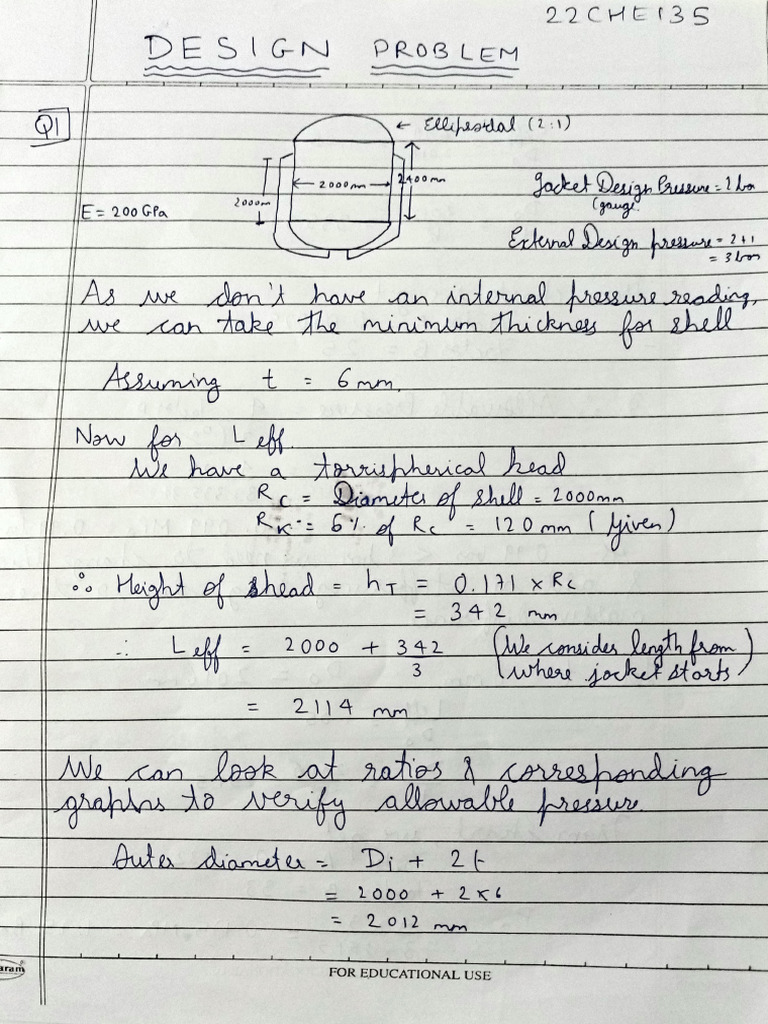 22CHE135
DESIGN PROBLEM
Q1
← Ellipsoidal (2:1)
2000mm
2400mm
2000m
E = 200 GPa
Jacket Design Pressure = 2 bar
(gauge.
External Design pressure = 2+1
= 3 bar
As we don't have an internal pressure reading,
we can take the minimum thickness for shell
Assuming t = 6 mm.
Now for L eff.
We have a torrispherical head
Rc = Diameter of shell = 2000mm
RK = 6% of Rc = 120 mm (Given)
∴ Height of head = hT = 0.171 × Rc
= 342 mm
∴ L eff = 2000 + 342/3 (We consider length from
where jacket starts)
= 2114 mm
We can look at ratios & corresponding
graphns to verify allowable pressure.
Outer diameter = Di + 2t
= 2000 + 2×6
= 2012 mm
aram
FOR EDUCATIONAL USE